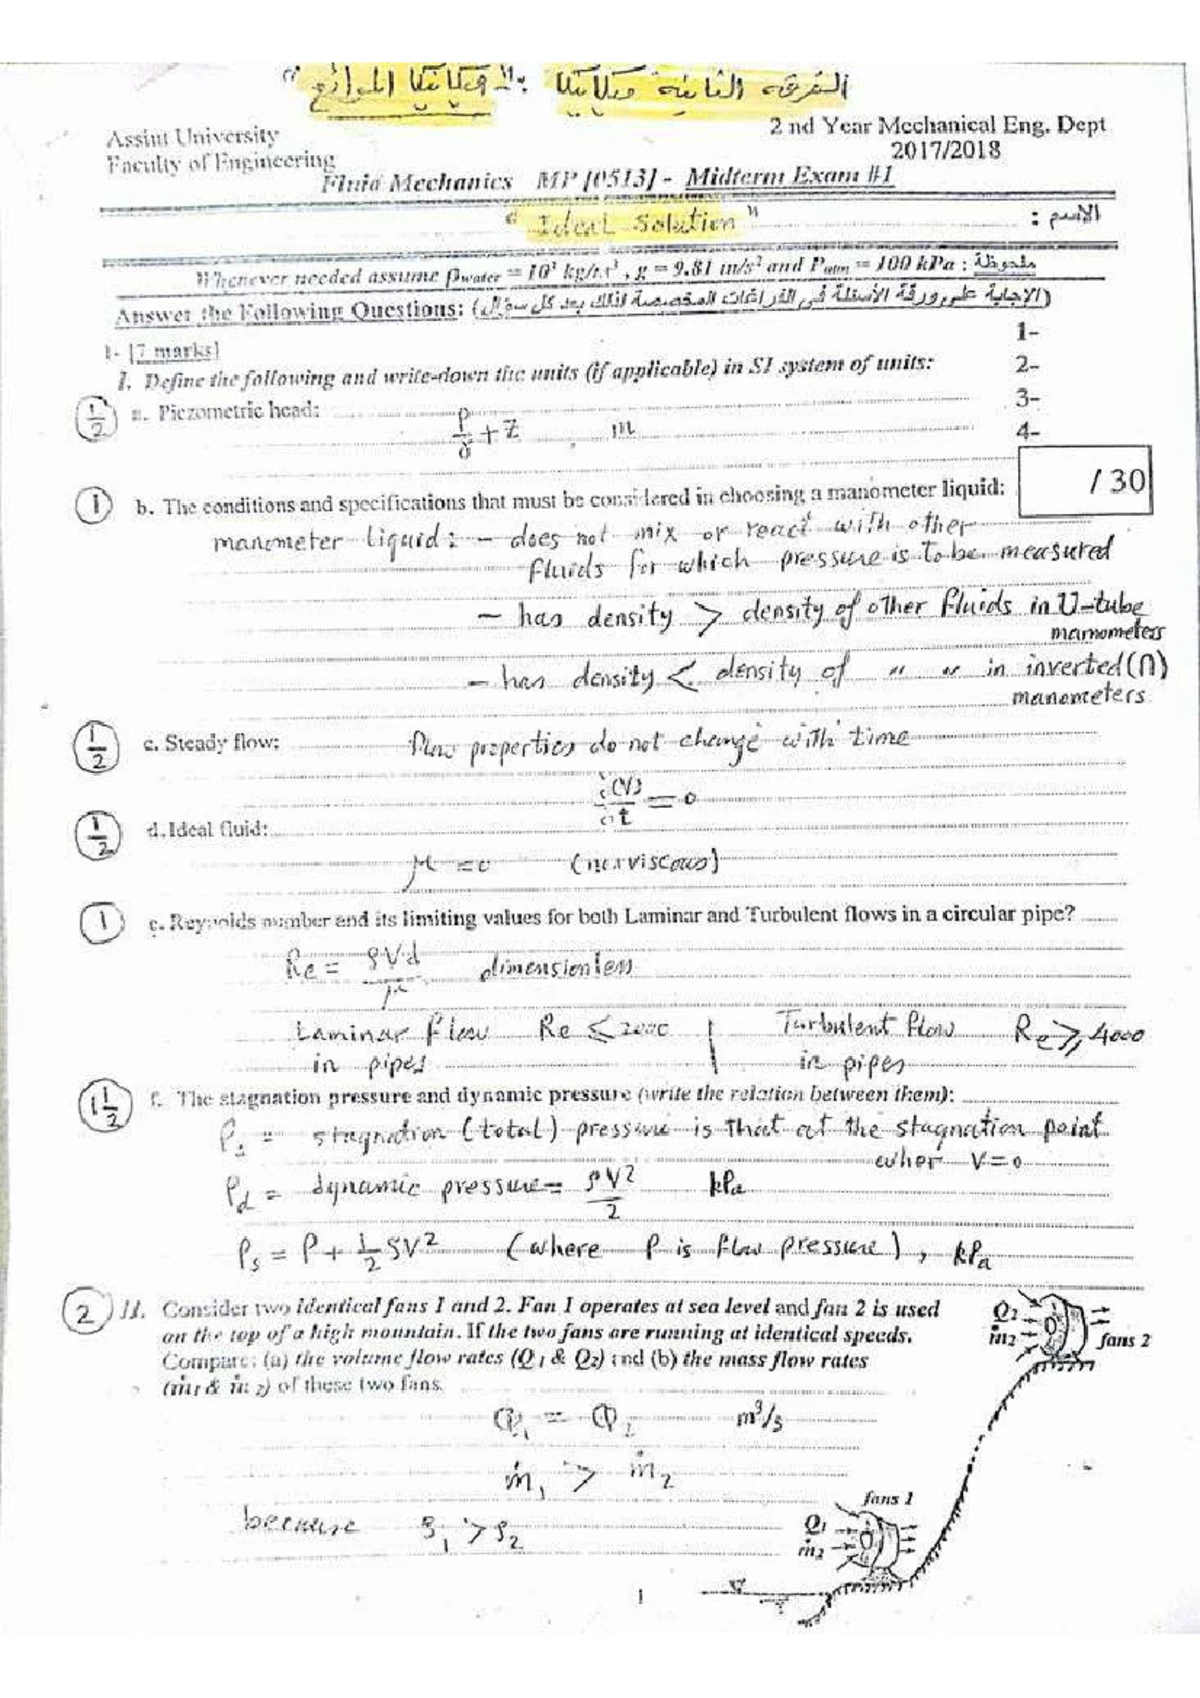 الفرقه الثانية ميكانيكا :- "ميكانيكا الموائع"
Assiut University
Faculty of Engineering
2 nd Year Mechanical Eng. Dept
2017/2018
Fluid Mechanics MP [0513] - Midterm Exam #1
" Ideal Solution "
الاسم :
Whenever needed assume ρwater = 10³ kg/m³ , g = 9.81 m/s² and Patm = 100 kPa : ملحوظة
Answer the Following Questions: (الإجابة على ورقة الأسئلة فى الفراغات المخصصة لذلك بعد كل سؤال)
1- [7 marks]
1-
I. Define the following and write-down the units (if applicable) in SI system of units:
2-
1/2 a. Piezometric head:
3-
P/γ + Z m
4-
/ 30
1 b. The conditions and specifications that must be considered in choosing a manometer liquid:
manometer liquid: - does not mix or react with other
fluids for which pressure is to be measured
- has density > density of other fluids in U-tube
manometers
- has density < density of " " in inverted (∩)
manometers
1/2 c. Steady flow:
flow properties do not change with time
∂( )/∂t = 0
1/2 d. Ideal fluid:
μ = 0 (nonviscous)
1 e. Reynolds number and its limiting values for both Laminar and Turbulent flows in a circular pipe?
Re = ρVd/μ dimensionless
Laminar flow Re ≤ 2000 | Turbulent flow Re ≥ 4000
in pipes | in pipes
1 1/2 f. The stagnation pressure and dynamic pressure (write the relation between them):
Ps = stagnation (total) pressure is that at the stagnation point
wher V=0
Pd = dynamic pressure = ρV²/2 kPa
Ps = P + 1/2 ρV² (where P is flow pressure) , kPa
2 II. Consider two identical fans 1 and 2. Fan 1 operates at sea level and fan 2 is used
on the top of a high mountain. If the two fans are running at identical speeds.
Compare: (a) the volume flow rates (Q1 & Q2) and (b) the mass flow rates
(ṁ1 & ṁ2) of these two fans.
Q2
ṁ2
fans 2
Q1 = Q2 m³/s
ṁ1 > ṁ2
because ρ1 > ρ2
fans 1
Q1
ṁ2
1